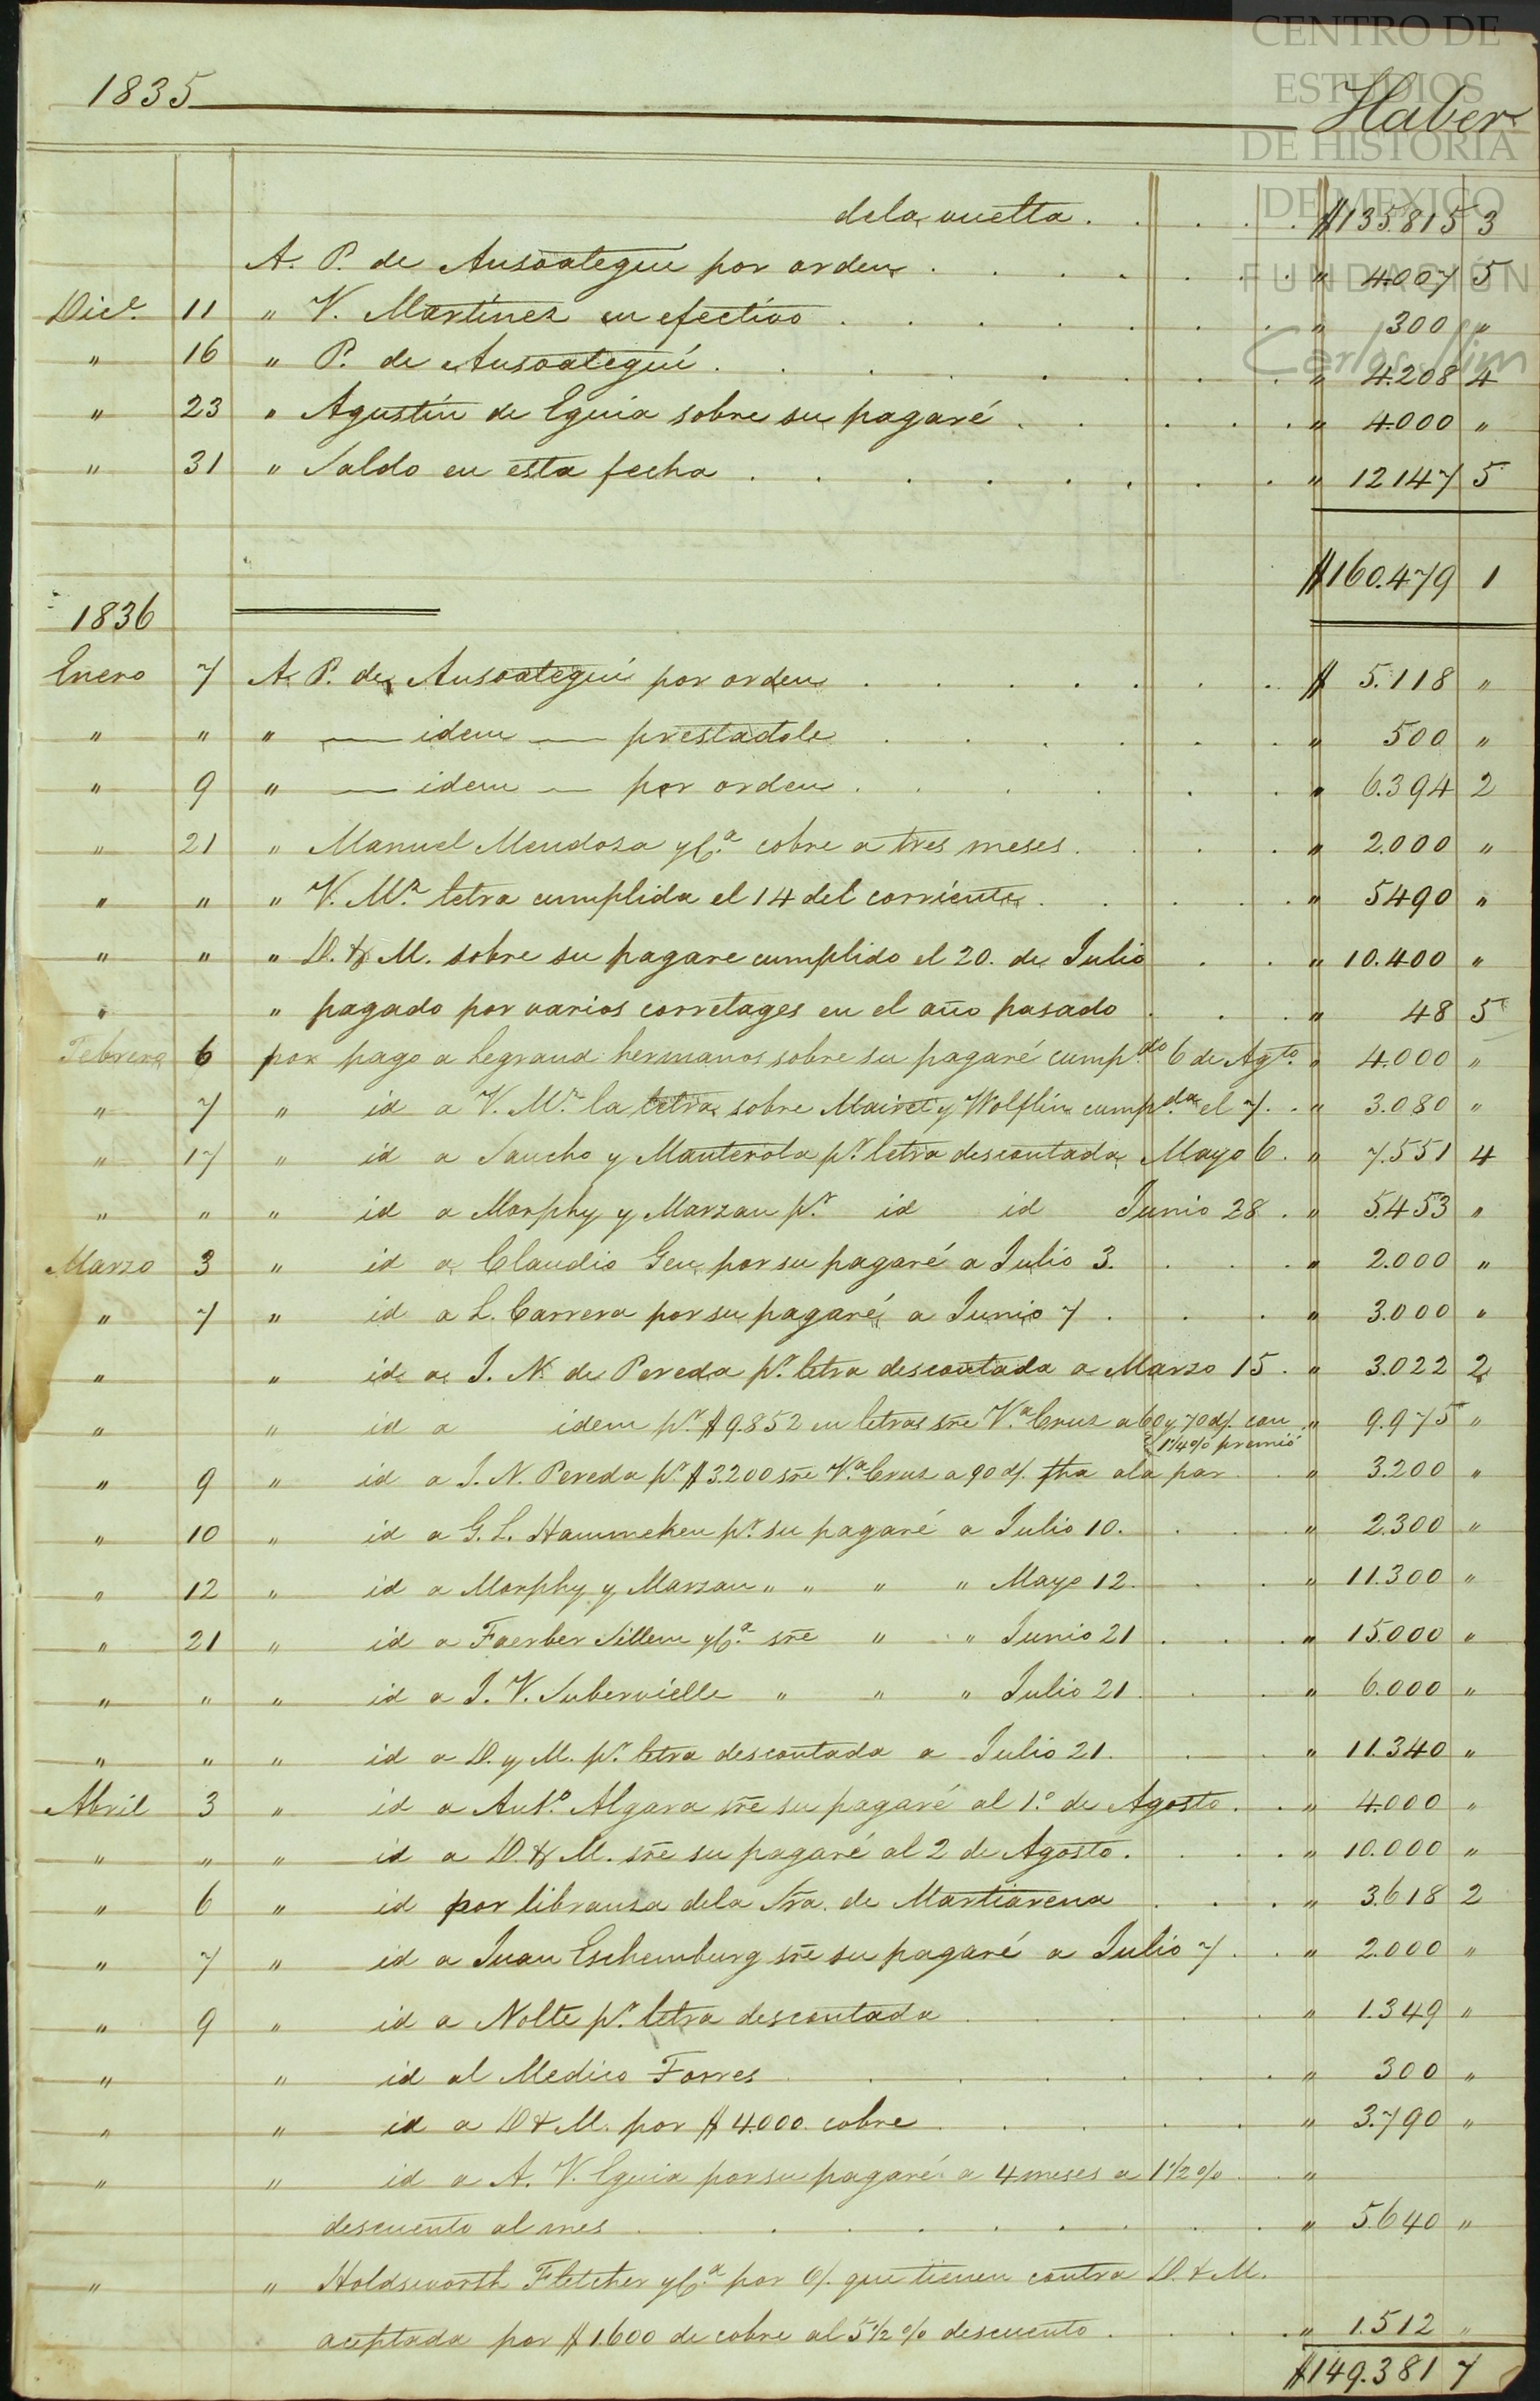 CENTRO DE
ESTUDIOS
DE HISTORIA
DE MEXICO
FUNDACIÓN
Carlos Slim
1835 Haber
dela vuelta $135.815 3
A. P. de Ansoategui por orden " 4.007 5
Dice. 11 " V. Martínez en efectivo " 300 "
" 16 " P. de Ansoategui " 4.208 4
" 23 " Agustín de Eguia sobre su pagaré " 4.000 "
" 31 " Saldo en esta fecha " 12147 5
$160.479 1
1836
Enero 7 A. P. de Ansoategui por orden $ 5.118 "
" " " — idem — prestadole " 500 "
" 9 " — idem — por orden " 6.394 2
" 21 " Manuel Mendosa yCa. cobre a tres meses " 2.000 "
" " " V. Mz. letra cumplida el 14 del corriente " 5490 "
" " " D. & M. sobre su pagare cumplido el 20. de Julio " 10.400 "
" " pagado por varios corretages en el año pasado " 48 5
Febrero 6 por pago a Legrand hermanos sobre su pagaré cumpdo. 6 de Agto. " 4.000 "
" 7 " id a V. Mz. la letra sobre Mairet y Wolflin cumpda. el 7. " 3.080 "
" 17 " id a Sancho y Manterola pr. letra descontada Mayo 6. " 7.551 4
" " " id a Morphy y Marzan pr. id id Junio 28 " 5453 "
Marzo 3 " id a Claudio Gen por su pagaré a Julio 3. " 2.000 "
" 7 " id a L. Carrera por su pagaré a Junio 7 " 3.000 "
" " id a J. N. de Pereda pr. letra descontada a Marzo 15. " 3.022 2
" " id a idem pr. $9.852 en letras sre Va. Cruz a 60 y 70 d/. con " 9.975 "
1¼% premio
" 9 " id a J. N. Pereda pr. $3.200 sre Va. Cruz a 90 d/. fha ala par " 3.200 "
" 10 " id a G. L. Hammeken pr. su pagaré a Julio 10. " 2.300 "
" 12 " id a Morphy y Marzan " " " " Mayo 12. " 11.300 "
" 21 " id a Faerber Sillem yCa. sre " " Junio 21 " 15.000 "
" " " id a J. V. Subervielle " " " Julio 21 " 6.000 "
" " " id a D. y M. pr. letra descontada a Julio 21. " 11.340 "
Abril 3 " id a Anto. Algara sre su pagaré al 1.º de Agosto. " 4.000 "
" " " id a D. & M. sre su pagaré al 2 de Agosto. " 10.000 "
" 6 " id por libranza dela Sra. de Martiarena " 3.618 2
" 7 " id a Juan Eschemburg sre su pagaré a Julio 7. " 2.000 "
" 9 " id a Nolte pr. letra descontada " 1.349 "
" " id al Medico Torres " 300 "
" " id a D & M. por $4.000 cobre " 3.790 "
" " id a A. V. Eguia por su pagaré a 4 meses a 1½% "
descuento al mes " 5.640 "
" " Holdsworth Fletcher yCa. por O/. que tienen contra D. & M.
aceptada por $1.600 de cobre al 5½% descuento " 1.512 "
$149.381 7